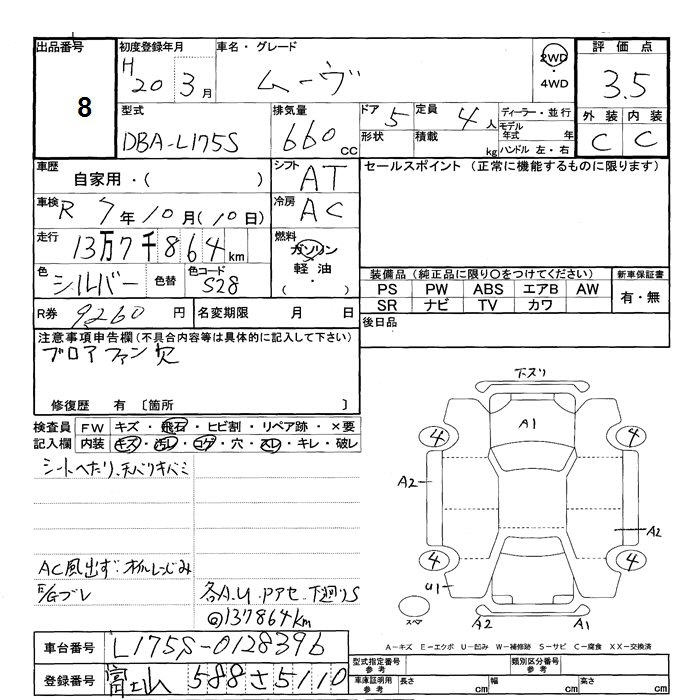 出品番号
8
初度登録年月
H 20 3月
車名・グレード
ムーヴ
2WD
・
4WD
評価点
3.5
外装 内装
C C
型式
DBA-L175S
排気量
660 cc
ドア 5
定員 4人
形状
積載 kg
ディーラー・並行
モデル年式 年
ハンドル 左・右
車歴
自家用・( )
シフト AT
車検 R 7年10月(10日)
冷房 AC
走行
13万7千864km
燃料
ガソリン
軽油
( ・ )
色 シルバー
色替
色コード S28
R券 9260 円
名変期限 月 日
セールスポイント (正常に機能するものに限ります)
装備品 (純正品に限り〇をつけてください)
PS PW ABS エアB AW
SR ナビ TV カワ
新車保証書
有・無
後日品
注意事項申告欄(不具合内容等は具体的に記入して下さい)
ブロアファン欠
修復歴 有 〔箇所 〕
検査員記入欄
FW キズ・飛石・ヒビ割・リペア跡・×要
内装 キズ・汚レ・コゲ・穴・スレ・キレ・破レ
シートへたり、天バリキバミ
AC風出ず
E/Gブレ
各A.U.Pアセ.下廻りS
@137864km
下スリ
A1
4
4
A2
A2
4
4
U1
スペア
A2
A1
A-キズ E-エクボ U-凹み W-補修跡 S-サビ C-腐食 XX-交換済
車台番号 L175S-0128396
登録番号 富士山 588 さ 5110
型式指定番号 参考
類別区分番号 参考
車庫証明用 参考
長さ cm
幅 cm
高さ cm